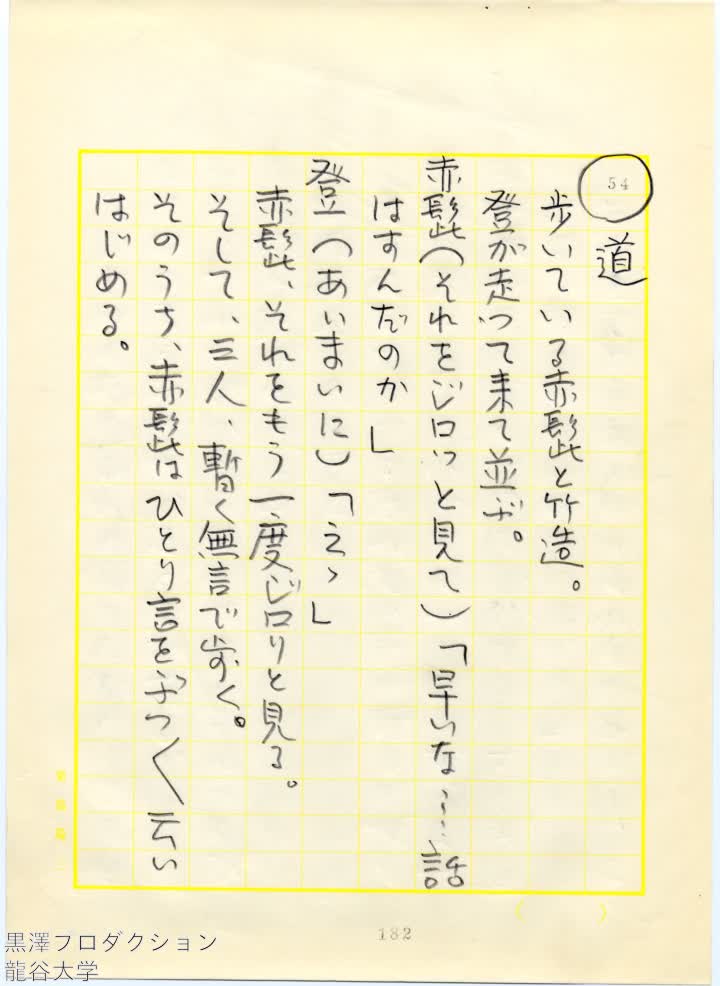 54
道
歩いている赤髭と竹造。
登が走って来て並ぶ。
赤髭(それをジロッと見て)「早いな……話
はすんだのか」
登(あいまいに)「えゝ」
赤髭、それをもう一度ジロリと見る。
そして、三人、暫く無言で歩く。
そのうち、赤髭はひとり言をぶつ〱云い
はじめる。
182
黒澤プロダクション
龍谷大学